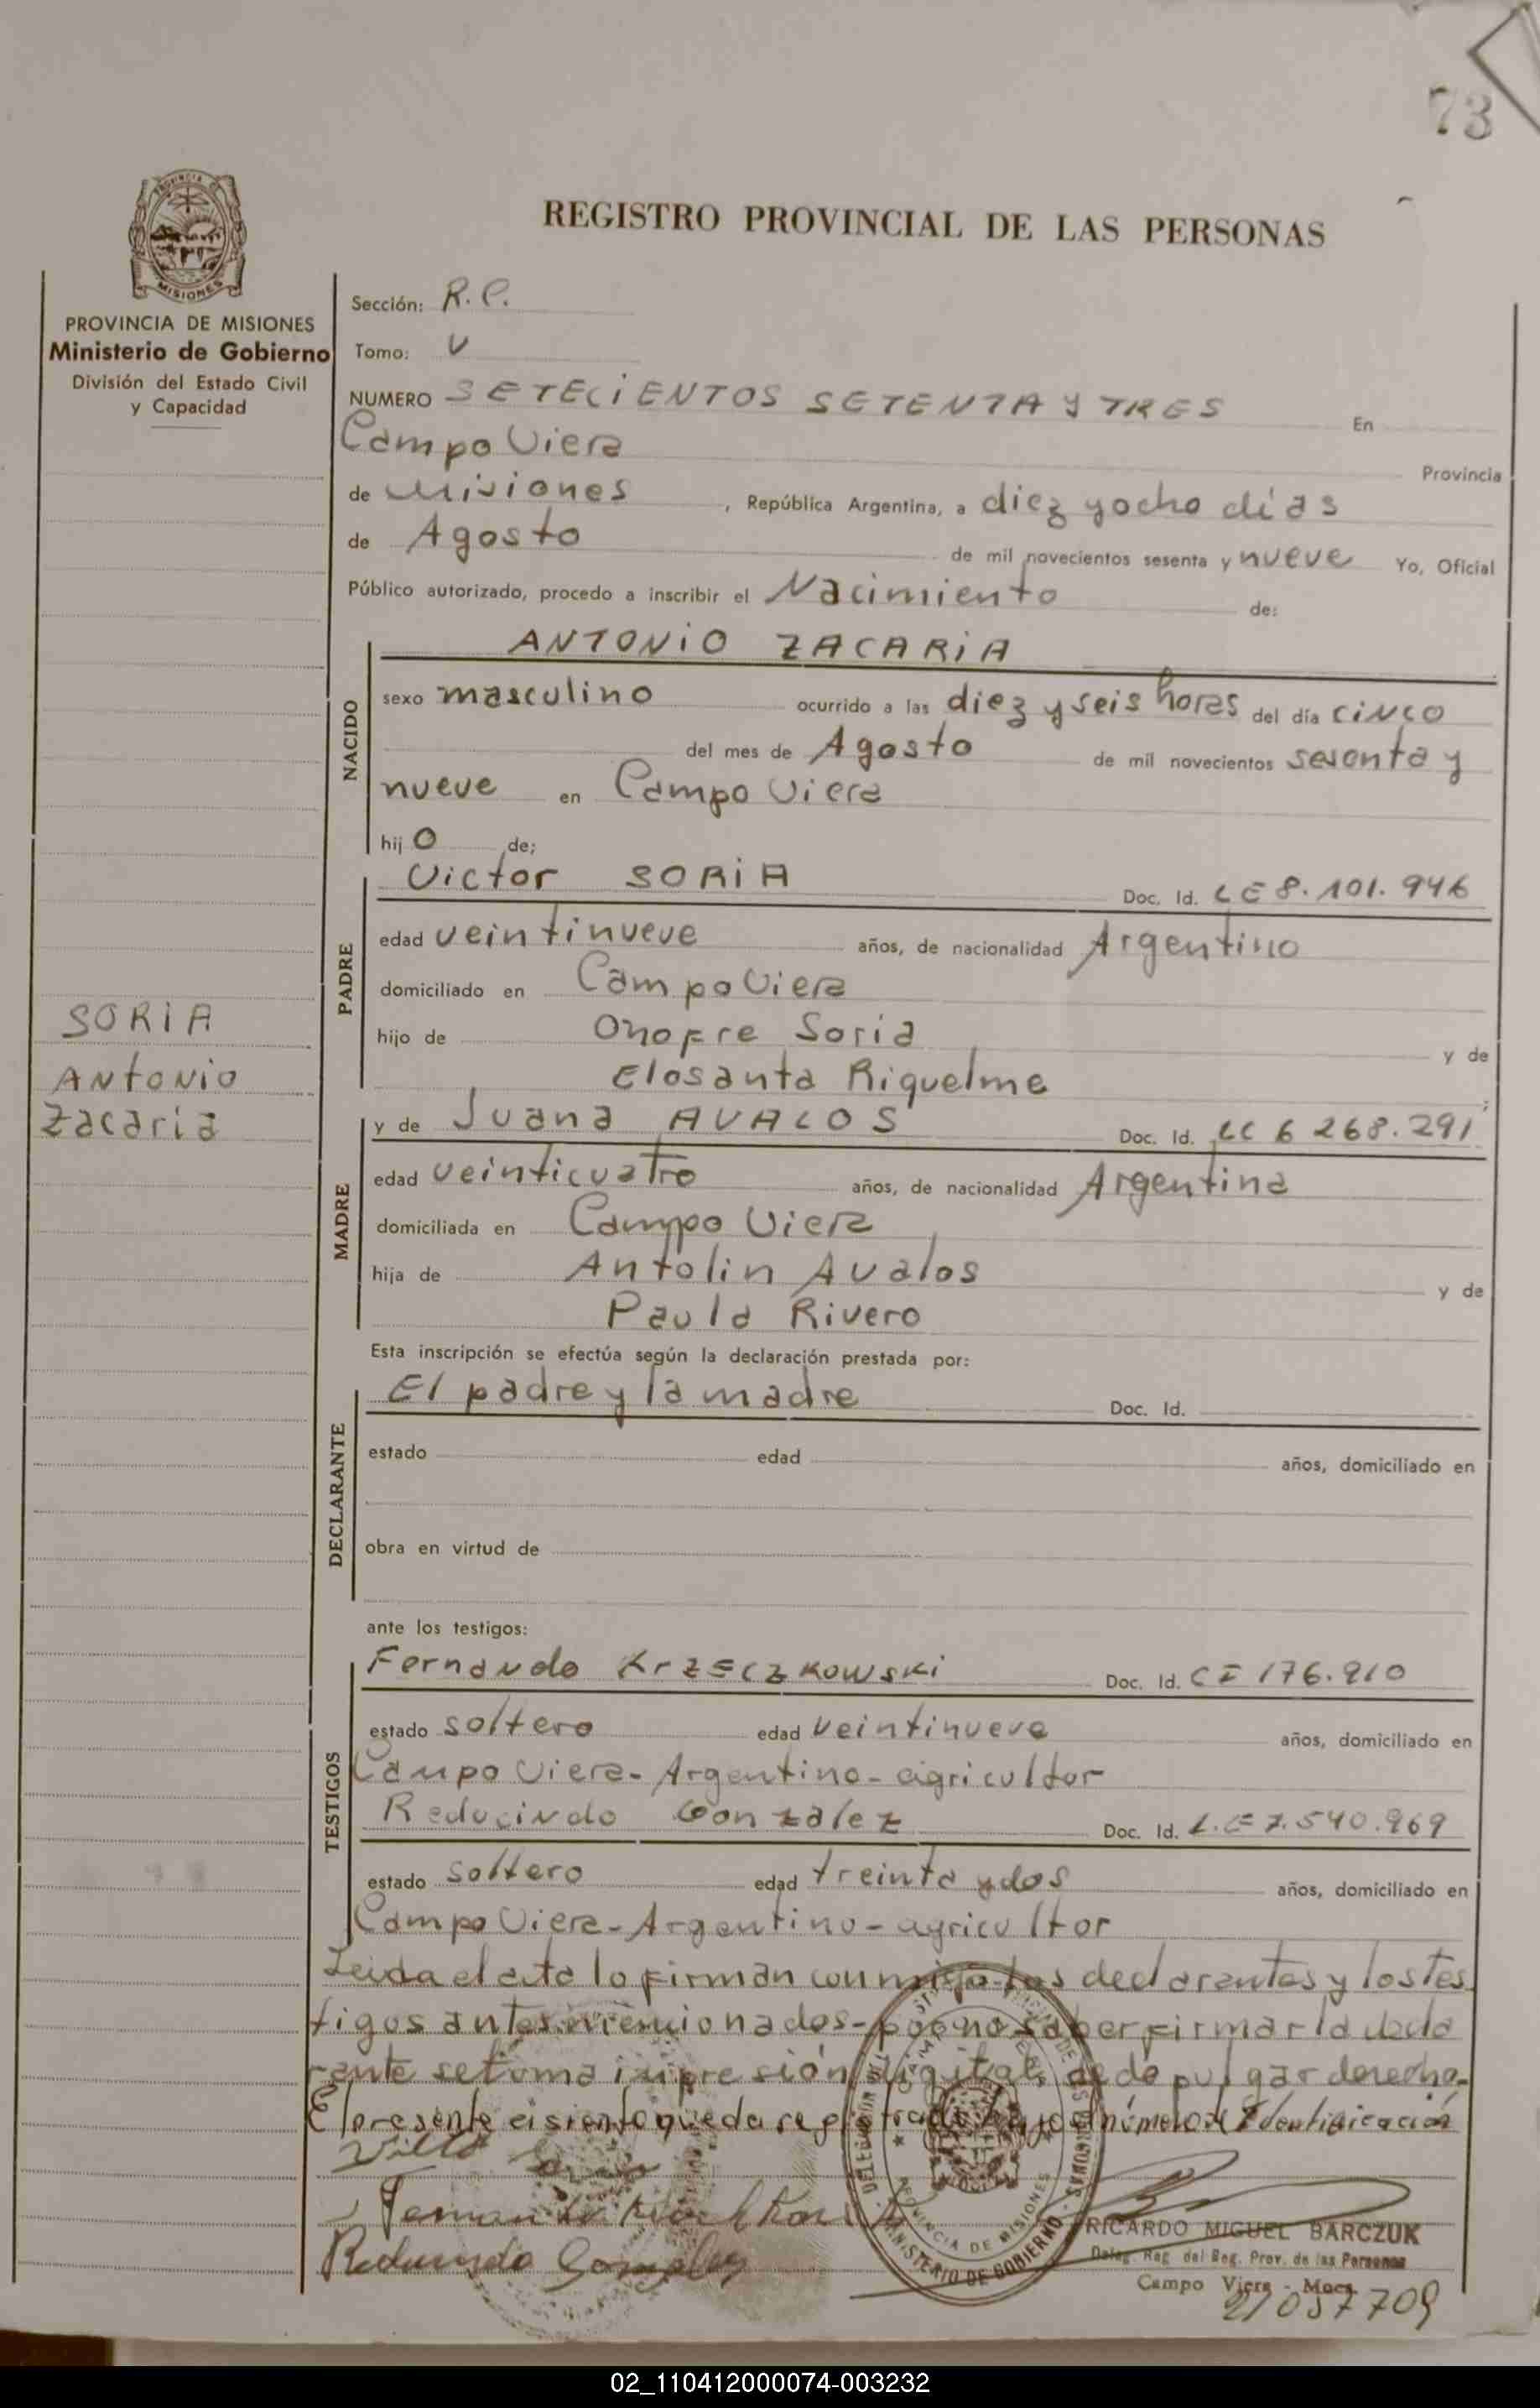 73
REGISTRO PROVINCIAL DE LAS PERSONAS
PROVINCIA DE MISIONES
Ministerio de Gobierno
División del Estado Civil
y Capacidad
SORIA
ANTONIO
Zacaria
Sección: R.C.
Tomo: V
NUMERO SETECIENTOS SETENTA Y TRES En
Campo Viera Provincia
de Misiones, República Argentina, a diez y ocho días
de Agosto de mil novecientos sesenta y nueve Yo, Oficial
Público autorizado, procedo a inscribir el Nacimiento de:
NACIDO
ANTONIO ZACARIA
sexo masculino ocurrido a las diez y seis horas del día CINCO
del mes de Agosto de mil novecientos sesenta y
nueve en Campo Viera
hijo de;
PADRE
Victor SORIA Doc. Id. LE 8.101.946
edad veintinueve años, de nacionalidad Argentino
domiciliado en Campo Viera
hijo de Onofre Soria y de
Elosanta Riquelme
MADRE
y de Juana AVALOS Doc. Id. LC 6 268.291
edad veinticuatro años, de nacionalidad Argentina
domiciliada en Campo Viera
hija de Antolin Avalos y de
Paula Rivero
Esta inscripción se efectúa según la declaración prestada por:
DECLARANTE
El padre y la madre Doc. Id.
estado edad años, domiciliado en
obra en virtud de
ante los testigos:
TESTIGOS
Fernando KRZECZKOWSKI Doc. Id. CI 176.910
estado soltero edad veintinueve años, domiciliado en
Campo Viera- Argentino- agricultor
Reducindo Gonzalez Doc. Id. L.E 7.540.969
estado soltero edad treinta y dos años, domiciliado en
Campo Viera-Argentino-agricultor
Leida el acta lo firman conmigo los declarantes y los tes
tigos antes mencionados- por no saber firmar la decla
rante se toma impresión digital dedo pulgar derecho-
El presente asiento queda registrado bajo el número de Identificación
PROVINCIA DE MISIONES
MINISTERIO DE GOBIERNO
RICARDO MIGUEL BARCZUK
Deleg. Reg. del Reg. Prov. de las Personas
Campo Viera - Mnes.
21 057 709
02_110412000074-003232